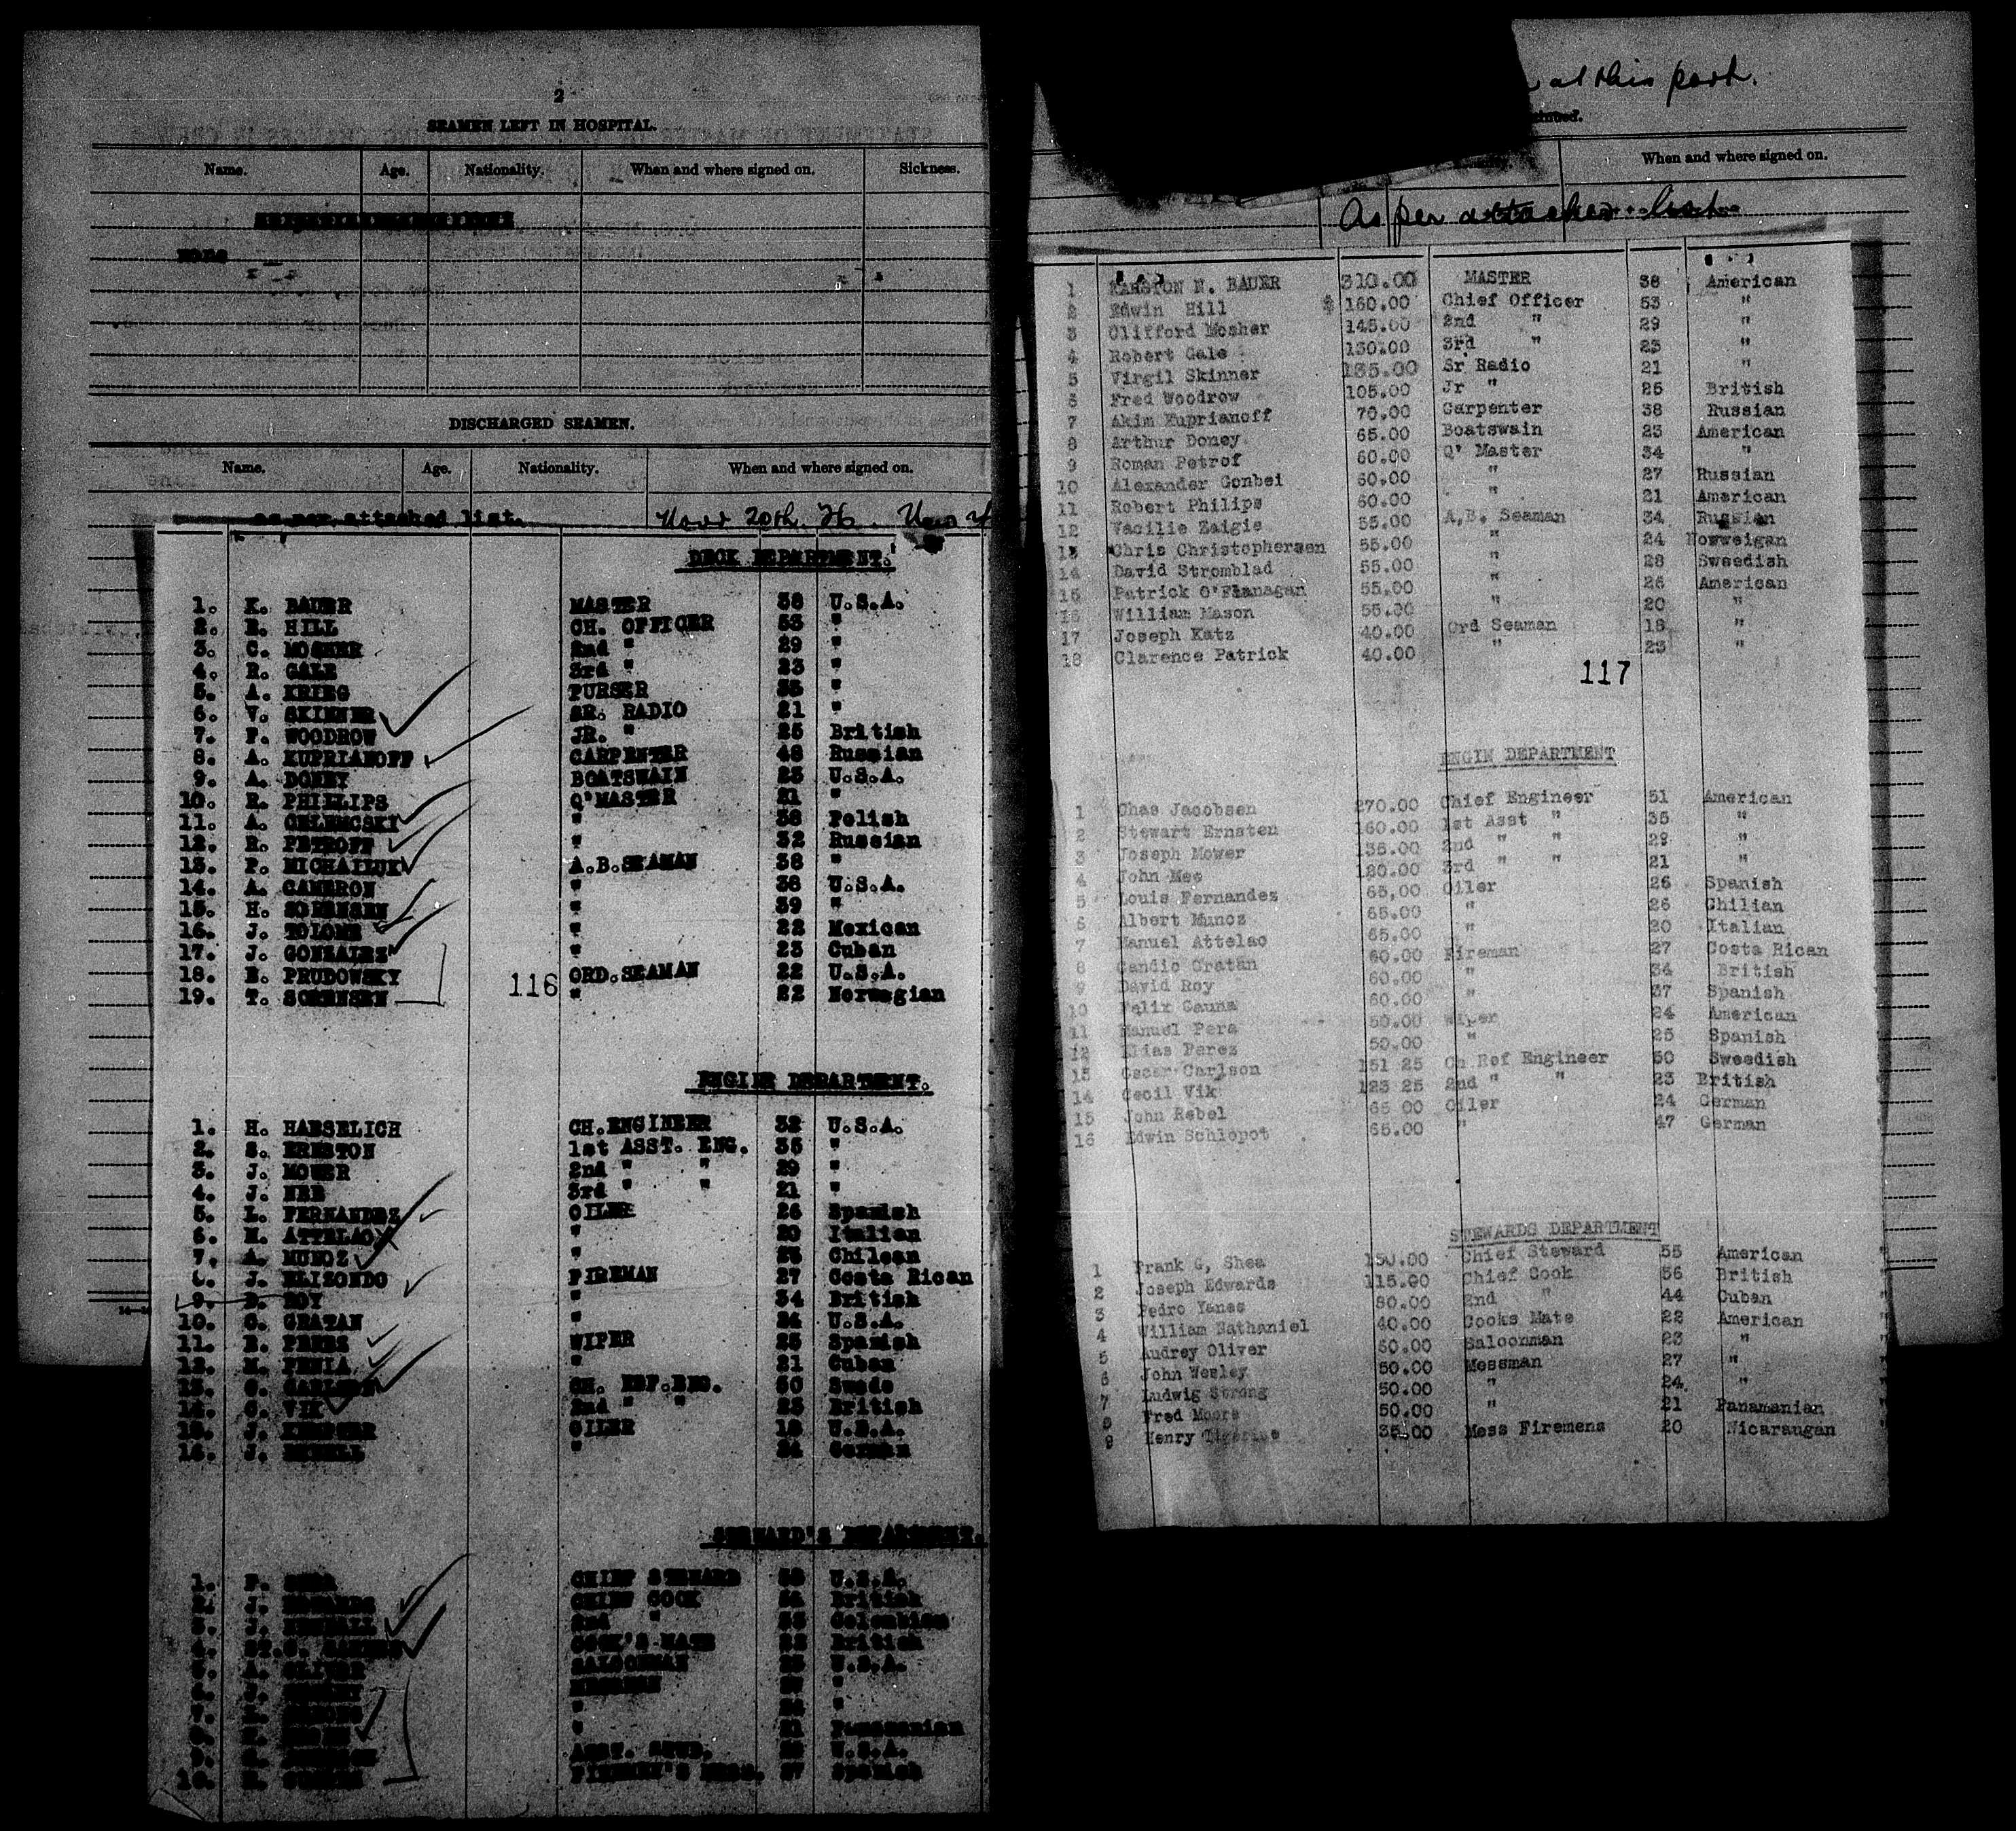 2
SEAMEN LEFT IN HOSPITAL.
Name. Age. Nationality. When and where signed on. Sickness.
DISCHARGED SEAMEN.
Name. Age. Nationality. When and where signed on.
as per attached list.
DECK DEPARTMENT.
1. K. BAUER MASTER 38 U.S.A.
2. E. HILL CH. OFFICER 53 "
3. C. MOSHER 2nd " 29 "
4. R. GALE 3rd " 23 "
5. A. KRIEG PURSER 35 "
6. V. SKINNER SR. RADIO 21 "
7. F. WOODROW JR. " 25 British
8. A. KUPRIANOFF CARPENTER 48 Russian
9. A. DONEY BOATSWAIN 23 U.S.A.
10. R. PHILLIPS Q'MASTER 21 "
11. A. " 38 Polish
12. R. PETROFF " 32 Russian
13. P. MICHAILUK A.B.SEAMAN 38 "
14. A. CAMERON " 38 U.S.A.
15. H. SORENSEN " 39 "
16. J. TOLOME " 22 Mexican
17. J. GONZALES " 23 Cuban
18. E. PRUDOWSKY ORD.SEAMAN 22 U.S.A.
19. T. SORENSEN " 22 Norwegian
116
ENGINE DEPARTMENT.
1. H. HAESELICH CH.ENGINEER 32 U.S.A.
2. S. ERNSTON 1st ASST. ENG. 35 "
3. J. MOWER 2nd " " 29 "
4. J. 3rd " " 21 "
5. L. FERNANDEZ OILER 26 Spanish
6. M. ATTELAO " 20 Italian
7. A. MUNOZ " 25 Chilean
8. J. ELIZONDO FIREMAN 27 Costa Rican
9. D. ROY " 34 British
10. C. GRATAN " 24 U.S.A.
11. E. PEREZ WIPER 25 Spanish
12. M. PENIA " 21 Cuban
13. O. CARLSON CH. REF.ENG. 50 Swede
14. C. VIK 2nd " " 23 British
15. J. OILER 18 U.S.A.
16. J. " 24 German
STEWARD'S DEPARTMENT.
1. F. CHIEF STEWARD U.S.A.
2. J. EDWARDS CHIEF COOK British
3. J. 2nd " Colombian
4. COOK'S MATE 22 British
5. A. OLIVER SALOONMAN U.S.A.
6. J. MESSMAN 27 "
7. L. STRONG " 24 "
8. F. " 21 Panamanian
9. ASST. STWD. U.S.A.
10. FIREMEN'S MESS. 27 Spanish
at this port.
When and where signed on.
As per attached list
1 KARSTON N. BAUER 310.00 MASTER 38 American
2 Edwin Hill $ 160.00 Chief Officer 53 "
3 Clifford Mosher 145.00 2nd " 29 "
4 Robert Gale 130.00 3rd " 23 "
5 Virgil Skinner 135.00 Sr Radio 21 "
6 Fred Woodrow 105.00 Jr " 25 British
7 Akim Kuprianoff 70.00 Carpenter 38 Russian
8 Arthur Doney 65.00 Boatswain 23 American
9 Roman Petrof 60.00 Q' Master 34 "
10 Alexander Gonbei 60.00 " 27 Russian
11 Robert Philips 60.00 " 21 American
12 Vacilie Zaigis 55.00 A.B. Seaman 34 Russian
13 Chris Christophersen 55.00 " 24 Norweigan
14 David Stromblad 55.00 " 28 Sweedish
15 Patrick O'Flanagan 55.00 " 26 American
16 William Mason 55.00 " 20 "
17 Joseph Katz 40.00 Ord Seaman 18 "
18 Clarence Patrick 40.00 " 23 "
117
ENGIN DEPARTMENT
1 Chas Jacobsen 270.00 Chief Engineer 51 American
2 Stewart Ernsten 160.00 1st Asst " 35 "
3 Joseph Mower 135.00 2nd " " 29 "
4 John Nee 120.00 3rd " " 21 "
5 Louis Fernandes 65.00 Oiler 26 Spanish
6 Albert Munoz 65.00 " 26 Chilian
7 Manuel Attelao 65.00 " 20 Italian
8 Candio Gratan 60.00 Fireman 27 Costa Rican
9 David Roy 60.00 " 34 British
10 Felix Gauna 60.00 " 37 Spanish
11 Manuel Pera 50.00 Wiper 24 American
12 Elias Perez 50.00 " 25 Spanish
13 Oscar Carlson 151 25 Ch Ref Engineer 50 Sweedish
14 Cecil Vik 123 25 2nd " " 23 British
15 John Rebel 65 00 Oiler 24 German
16 Edwin Schlopot 65.00 " 47 German
STEWARDS DEPARTMENT
1 Frank G, Shea 150.00 Chief Steward 55 American
2 Joseph Edwards 115.00 Chief Cook 56 British
3 Pedro Yanes 80.00 2nd " 44 Cuban
4 William Nathaniel 40.00 Cooks Mate 22 American
5 Audrey Oliver 50.00 Saloonman 23 "
6 John Wesley 50.00 Messman 27 "
7 Ludwig Strong 50.00 " 24 "
8 Fred Moore 50.00 " 21 Panamanian
9 Henry 35.00 Mess Firemens 20 Nicaraugan